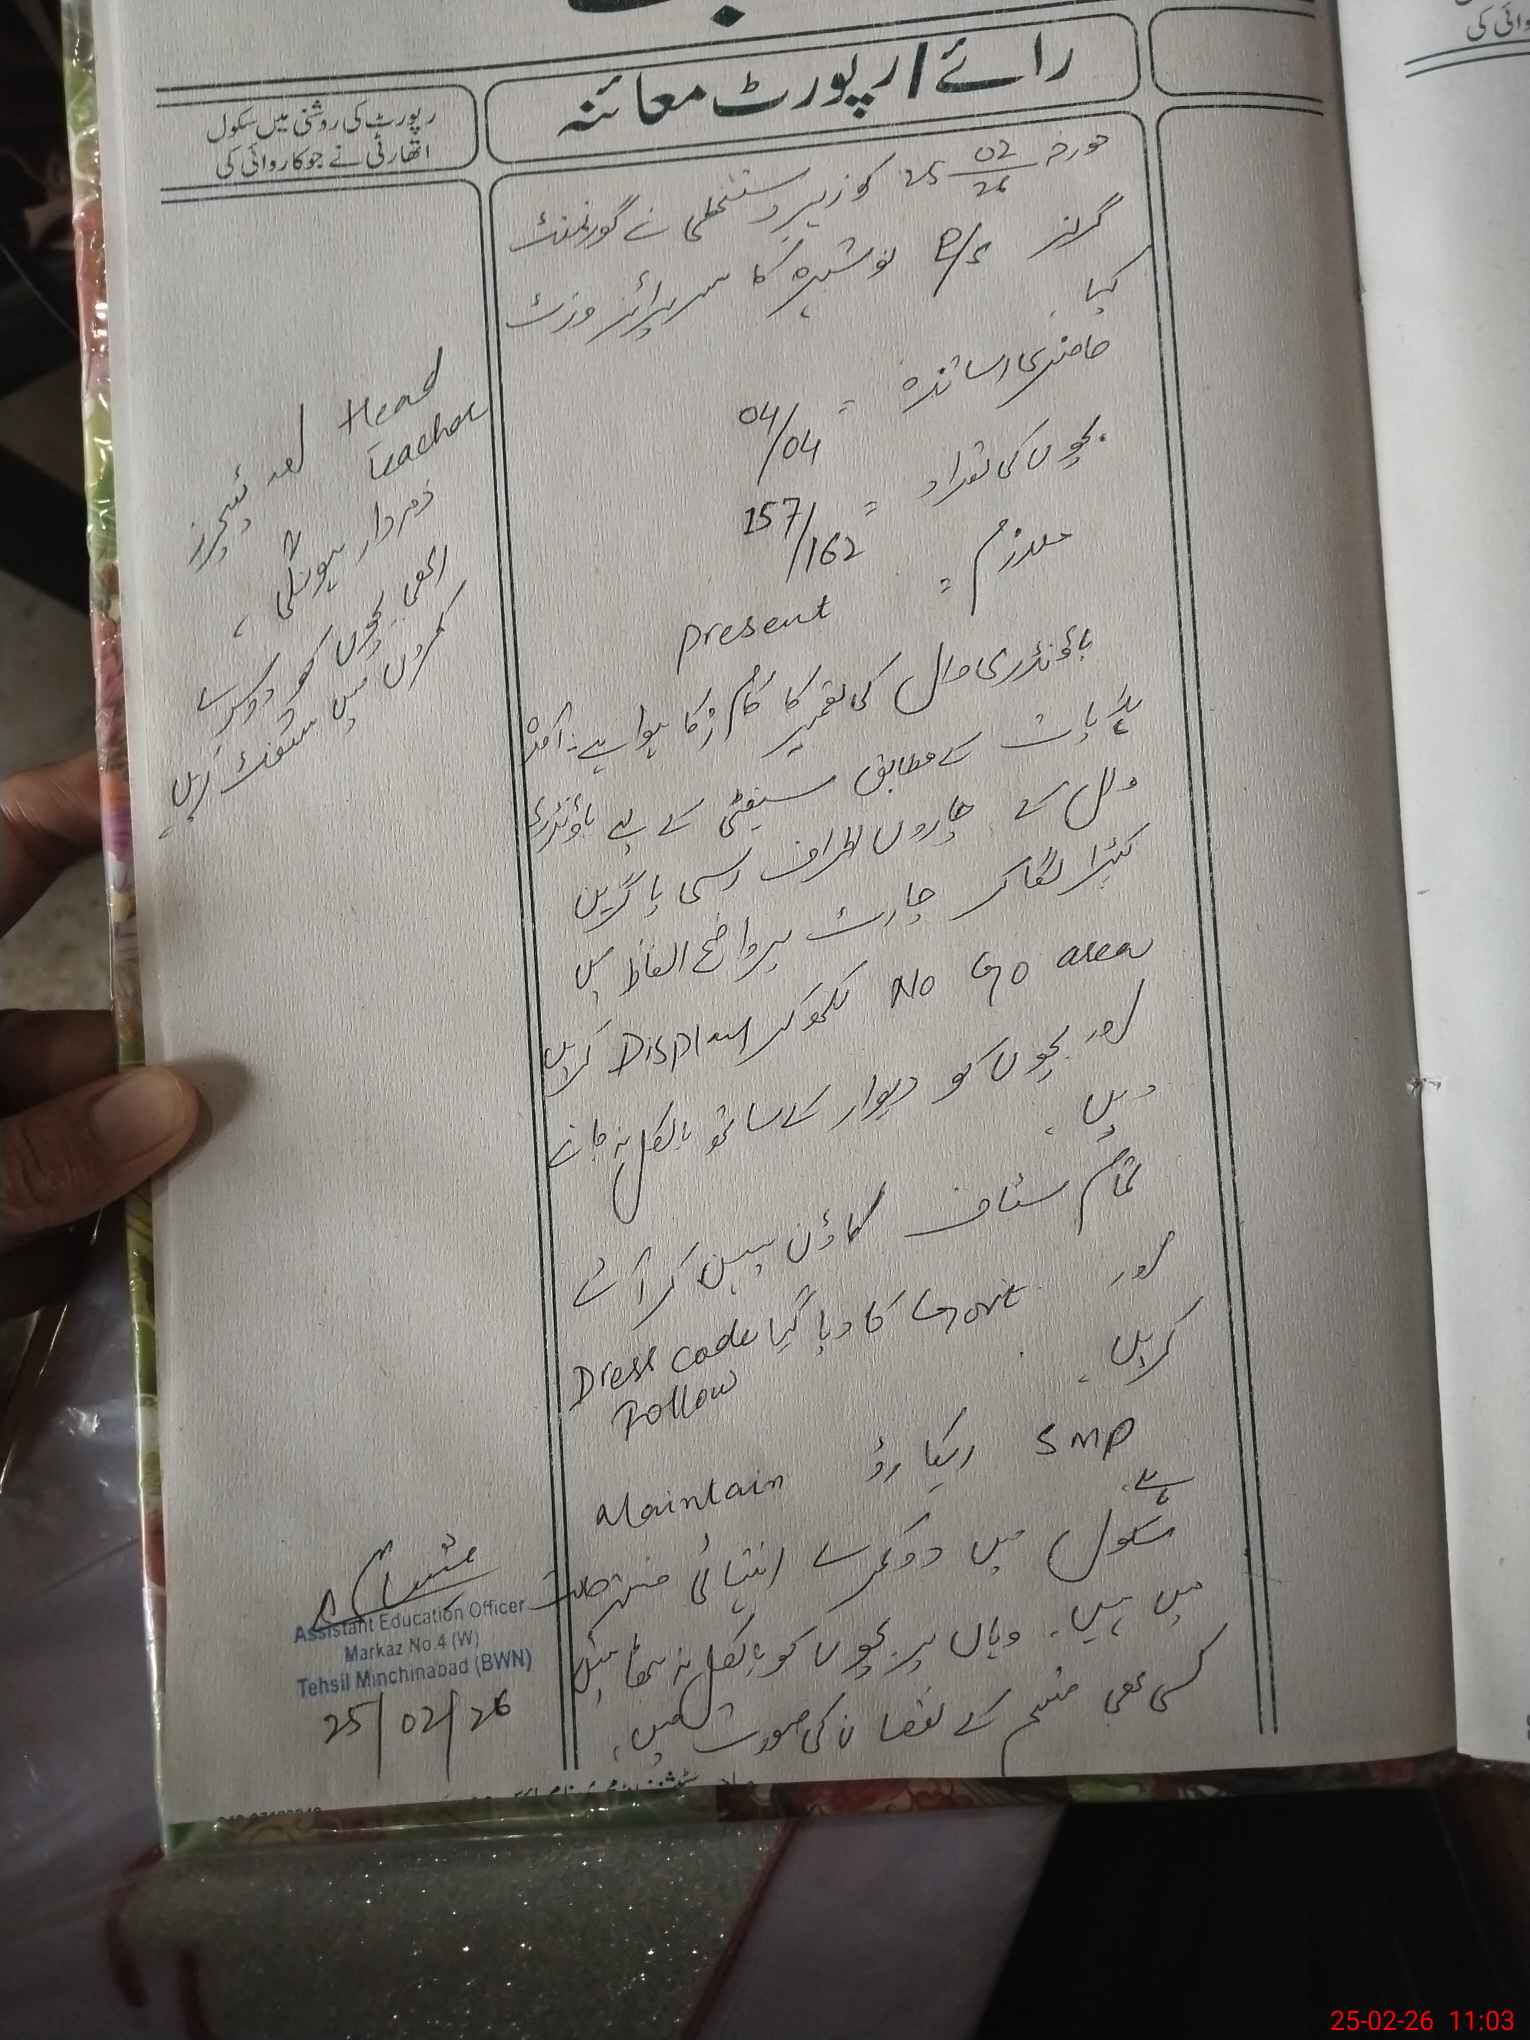 رائے / رپورٹ معائنہ
رپورٹ کی روشنی میں سکول
اتھارٹی نے جو کاروائی کی
مورخہ 25 02/26 کو زیر دستخطی نے گورنمنٹ
گرلز P/S نوشہرہ کا سرپرائز وزٹ
کیا۔
حاضری اساتذہ = 04/04
بچوں کی تعداد = 157/162
ملازم = Present
باؤنڈری وال کی تعمیر کا کام رُکا ہوا ہے۔
ہدایات کے مطابق سیفٹی کے لیے باؤنڈری
وال کے چاروں اطراف رسی یا گرین
کپڑا لگا کر چارٹ پر واضح الفاظ میں
No Go area لکھ کر Display کریں
اور بچوں کو دیوار کے ساتھ بالکل نہ جانے
دیں۔
تمام سٹاف گاؤن پہن کر آئے
اور Govt کا دیا گیا Dress code
Follow
کریں۔
SMP ریکارڈ Maintain
ہے۔
سکول میں دو کمرے انتہائی خستہ حالت
میں ہیں۔ وہاں پر بچوں کو بالکل نہ بٹھائیں
کسی بھی قسم کے نقصان کی صورت میں۔
Head
Teacher
اور ٹیچرز
ذمہ دار ہونگی۔
ابھی بچوں کو دوسرے
کمروں میں شفٹ کریں
Assistant Education Officer
Markaz No.4 (W)
Tehsil Minchinabad (BWN)
25/02/26
وائی کی
25-02-26 11:03